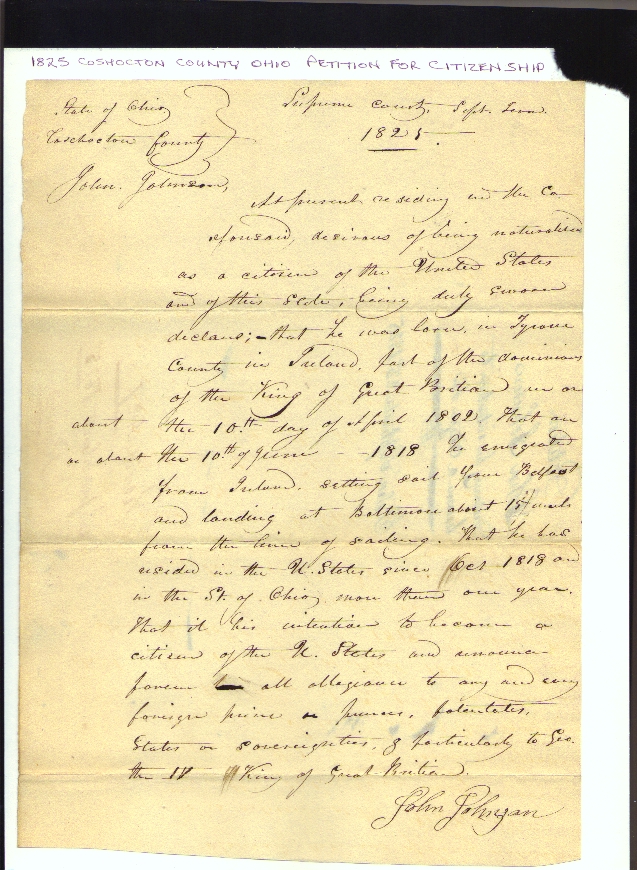 1825 COSHOCTON COUNTY OHIO PETITION FOR CITIZENSHIP
State of Ohio
Coschocton County
Supreme Court, Sept. Term
1825.
John. Johnson,
At present residing in the Co
aforesaid, desirous of being naturalized
as a citizen of the United States
and of this State, being duly sworn
declares; - that he was born, in Tyrone
County in Ireland, part of the dominions
of the King of Great Britian in or
about the 10th day of April 1802. That on
or about the 10th of June - - 1818 he emigrated
from Ireland, setting sail from Belfast
and landing at Baltimore about 15 weeks
from the time of sailing. That he has
resided in the U. States since Oct 1818 and
in the St. of Ohio, more than one year.
That it his intention to become a
citizen of the U. States and renounce
forever all allegiance to any and every
foreign prince or princes, potentates,
States or sovereignities, & particularly to Geo.
the IV King of Great Britian.
John Johnson